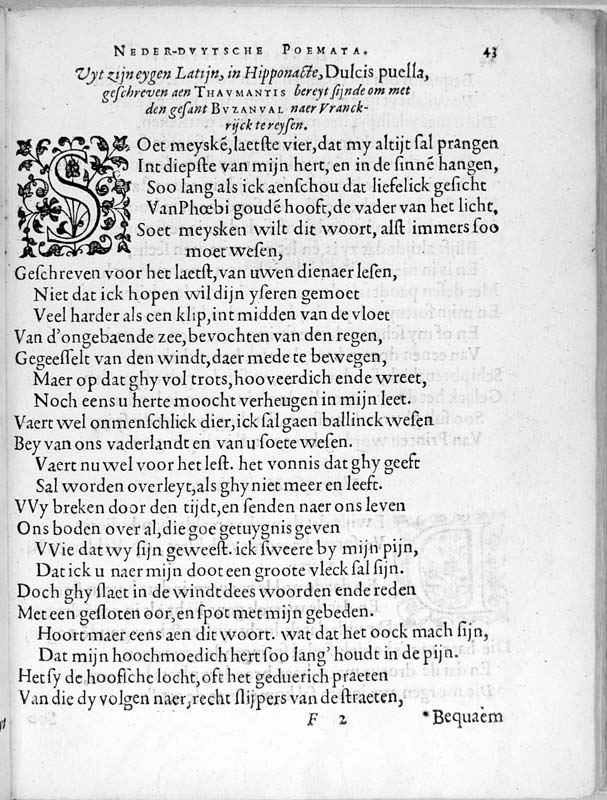 NEDER-DVYTSCHE POEMATA. 43
Uyt zijn eygen Latijn, in Hipponacte, Dulcis puella,
geschreven aen THAVMANTIS bereyt sijnde om met
den gesant BVZANVAL naer Vranck-
rijck te reysen.
SOet meyskē, laetste vier, dat my altijt sal prangen
Int diepste van mijn hert, en in de sinnē hangen,
Soo lang als ick aenschou dat liefelick gesicht
Van Phœbi goudē hooft, de vader van het licht,
Soet meysken wilt dit woort, alst immers soo
moet wesen,
Geschreven voor het laetst, van uwen dienaer lesen,
Niet dat ick hopen wil dijn yseren gemoet
Veel harder als een klip, int midden van de vloet
Van d'ongebaende zee, bevochten van den regen,
Gegeesselt van den windt, daer mede te bewegen,
Maer op dat ghy vol trots, hooveerdich ende wreet,
Noch eens u herte moocht verheugen in mijn leet.
Vaert wel onmenschlick dier, ick sal gaen ballinck wesen
Bey van ons vaderlandt en van u soete wesen.
Vaert nu wel voor het lest. het vonnis dat ghy geeft
Sal worden overleyt, als ghy niet meer en leeft.
VVy breken door den tijdt, en senden naer ons leven
Ons boden over al, die goe getuygnis geven
VVie dat wy sijn geweest. ick sweere by mijn pijn,
Dat ick u naer mijn doot een groote vleck sal sijn.
Doch ghy slaet in de windt dees woorden ende reden
Met een gesloten oor, en spot met mijn gebeden.
Hoort maer eens aen dit woort. wat dat het oock mach sijn,
Dat mijn hoochmoedich hert soo lang' houdt in de pijn.
Het sy de hoofsche locht, oft het geduerich praeten
Van die dy volgen naer, recht slijpers van de straeten,
F 2 Bequaem